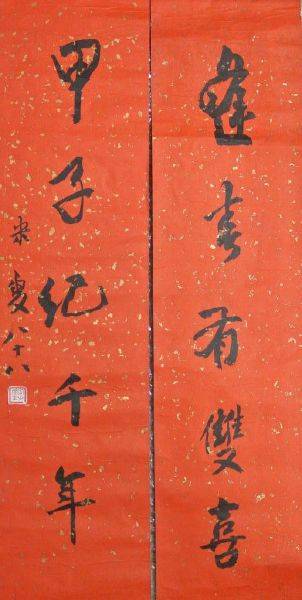 春有雙喜
甲子紀千年
米叟八十八